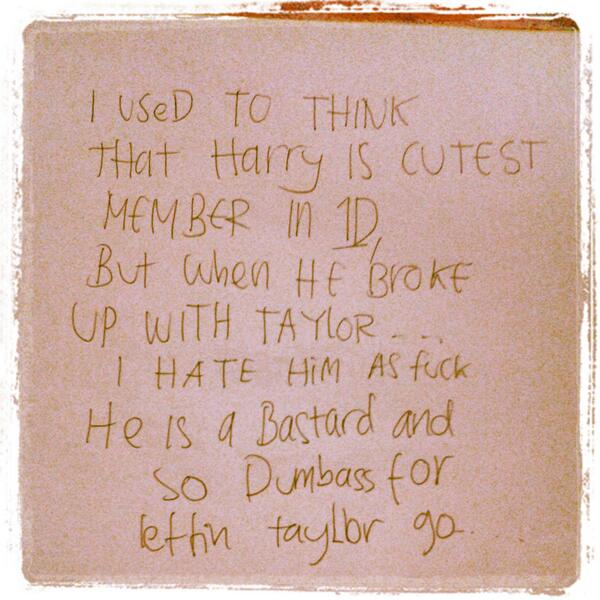 I USeD TO THINK
THat Harry IS CUTEST
MEMBER IN 1D,
But when HE BROKE
UP WITH TAYLOR....
I HATE HiM AS fuck
He is a Bastard and
so Dumbass for
lettin taylor go.